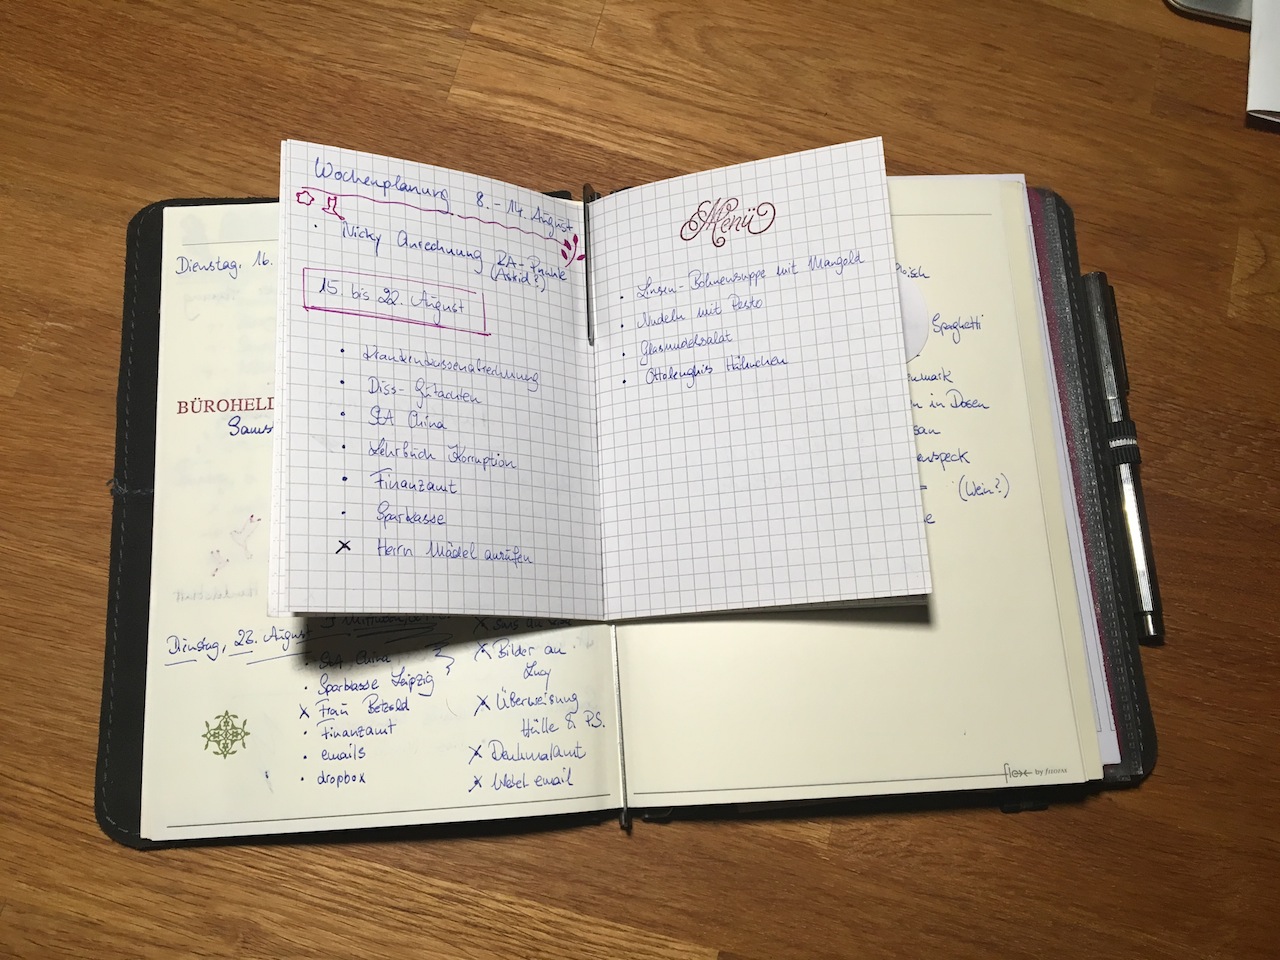 Wochenplanung 8. - 14. August
• Nicky Anrechnung ZA-Punkte
(Astrid?)
15. bis 22. August
• Krankenkassenabrechnung
• Diss-Gutachten
• StA China
• Lehrbuch Korruption
• Finanzamt
• Sparkasse
x Herrn Mädel anrufen
Menü
• Linsen-Bohnensuppe mit Mangold
• Nudeln mit Pesto
• Glasnudelsalat
• Ottolenghis Hühnchen
Dienstag, 16.
BÜROHELD
Sams
Dienstag, 23. August
• StA China
• Sparkasse Leipzig
x Frau Betzold
• Finanzamt
• emails
• dropbox
x Bilder an
Lucy
x Überweisung
Hülle & P.S.
x Denkmalamt
x Webel email
Spaghetti
nmark
n in Dosen
san
enspeck
(Wein?)
flex by FILOFAX